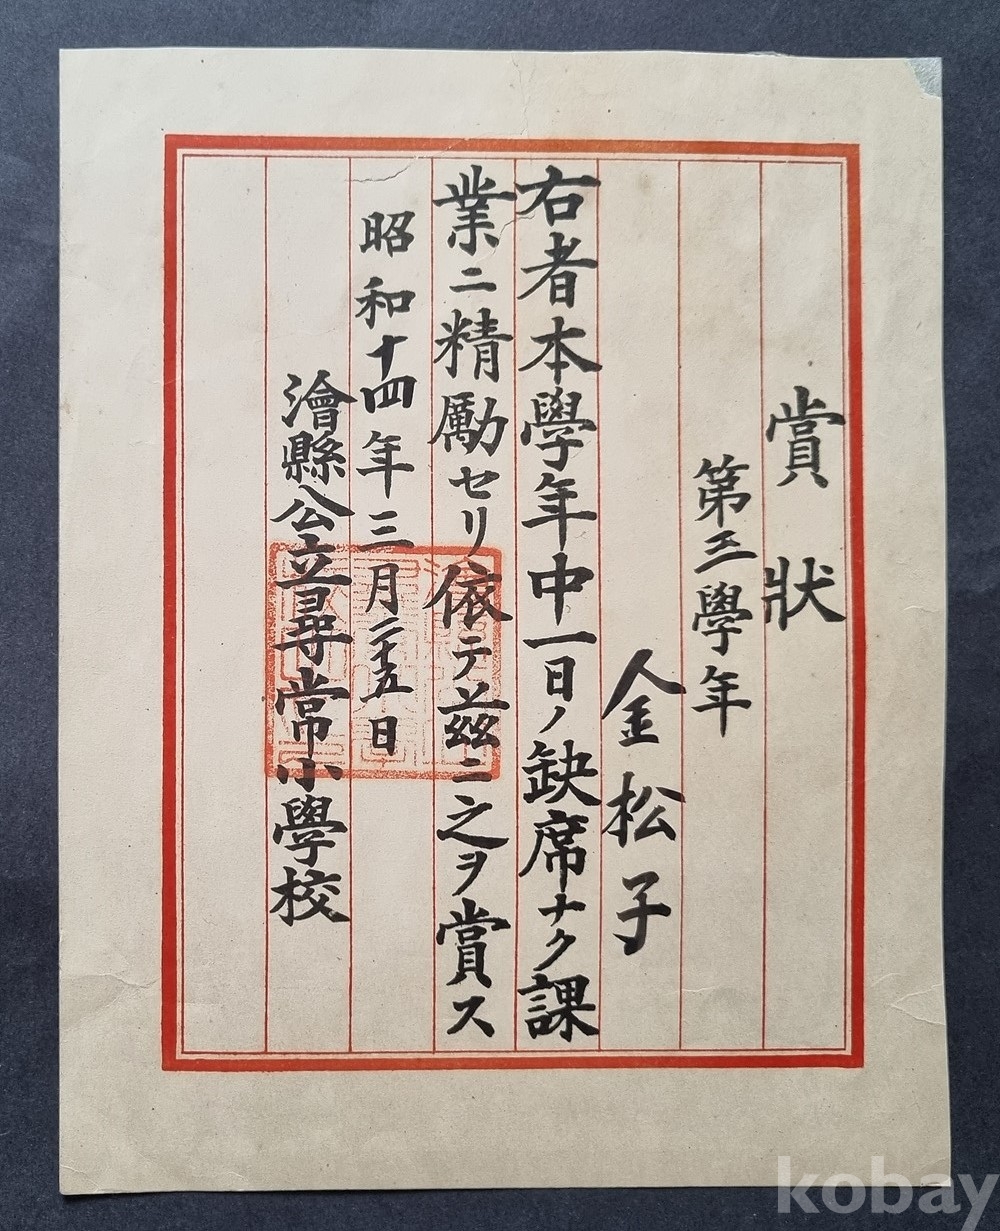 賞狀
第三學年
金松子
右者本學年中一日ノ缺席ナク課
業ニ精勵セリ依テ茲ニ之ヲ賞ス
昭和十四年三月二十五日
澮縣公立尋常小學校
kobay